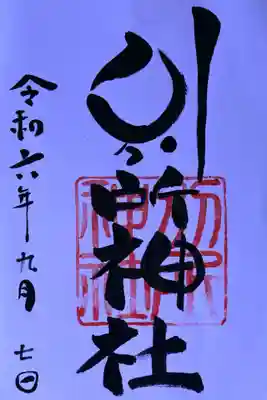 別所神社
令和六年九月七日